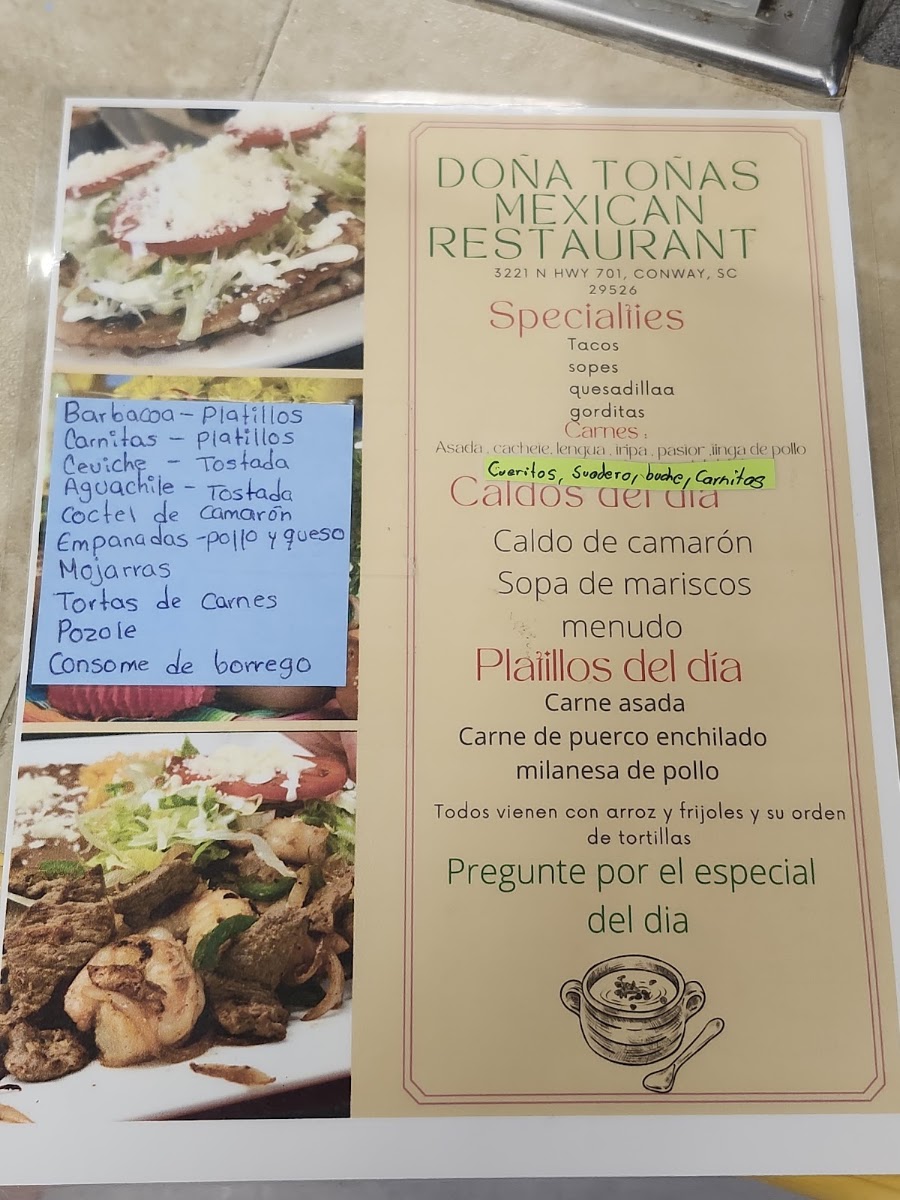 DOÑA TOÑAS
MEXICAN
RESTAURANT
3221 N HWY 701, CONWAY, SC
29526
Specialties
Tacos
sopes
quesadillaa
gorditas
Carnes :
Asada , cacheie, lengua , iripa , pasior ,iinga de pollo
Cueritos, Suadero, buche, Carnitas
Caldos del dia
Caldo de camarón
Sopa de mariscos
menudo
Platillos del día
Carne asada
Carne de puerco enchilado
milanesa de pollo
Todos vienen con arroz y frijoles y su orden
de tortillas
Pregunte por el especial
del dia
Barbacoa - Platillos
Carnitas - platillos
Ceviche - Tostada
Aguachile - Tostada
Coctel de camarón
Empanadas - pollo y queso
Mojarras
Tortas de Carnes
Pozole
Consome de borrego